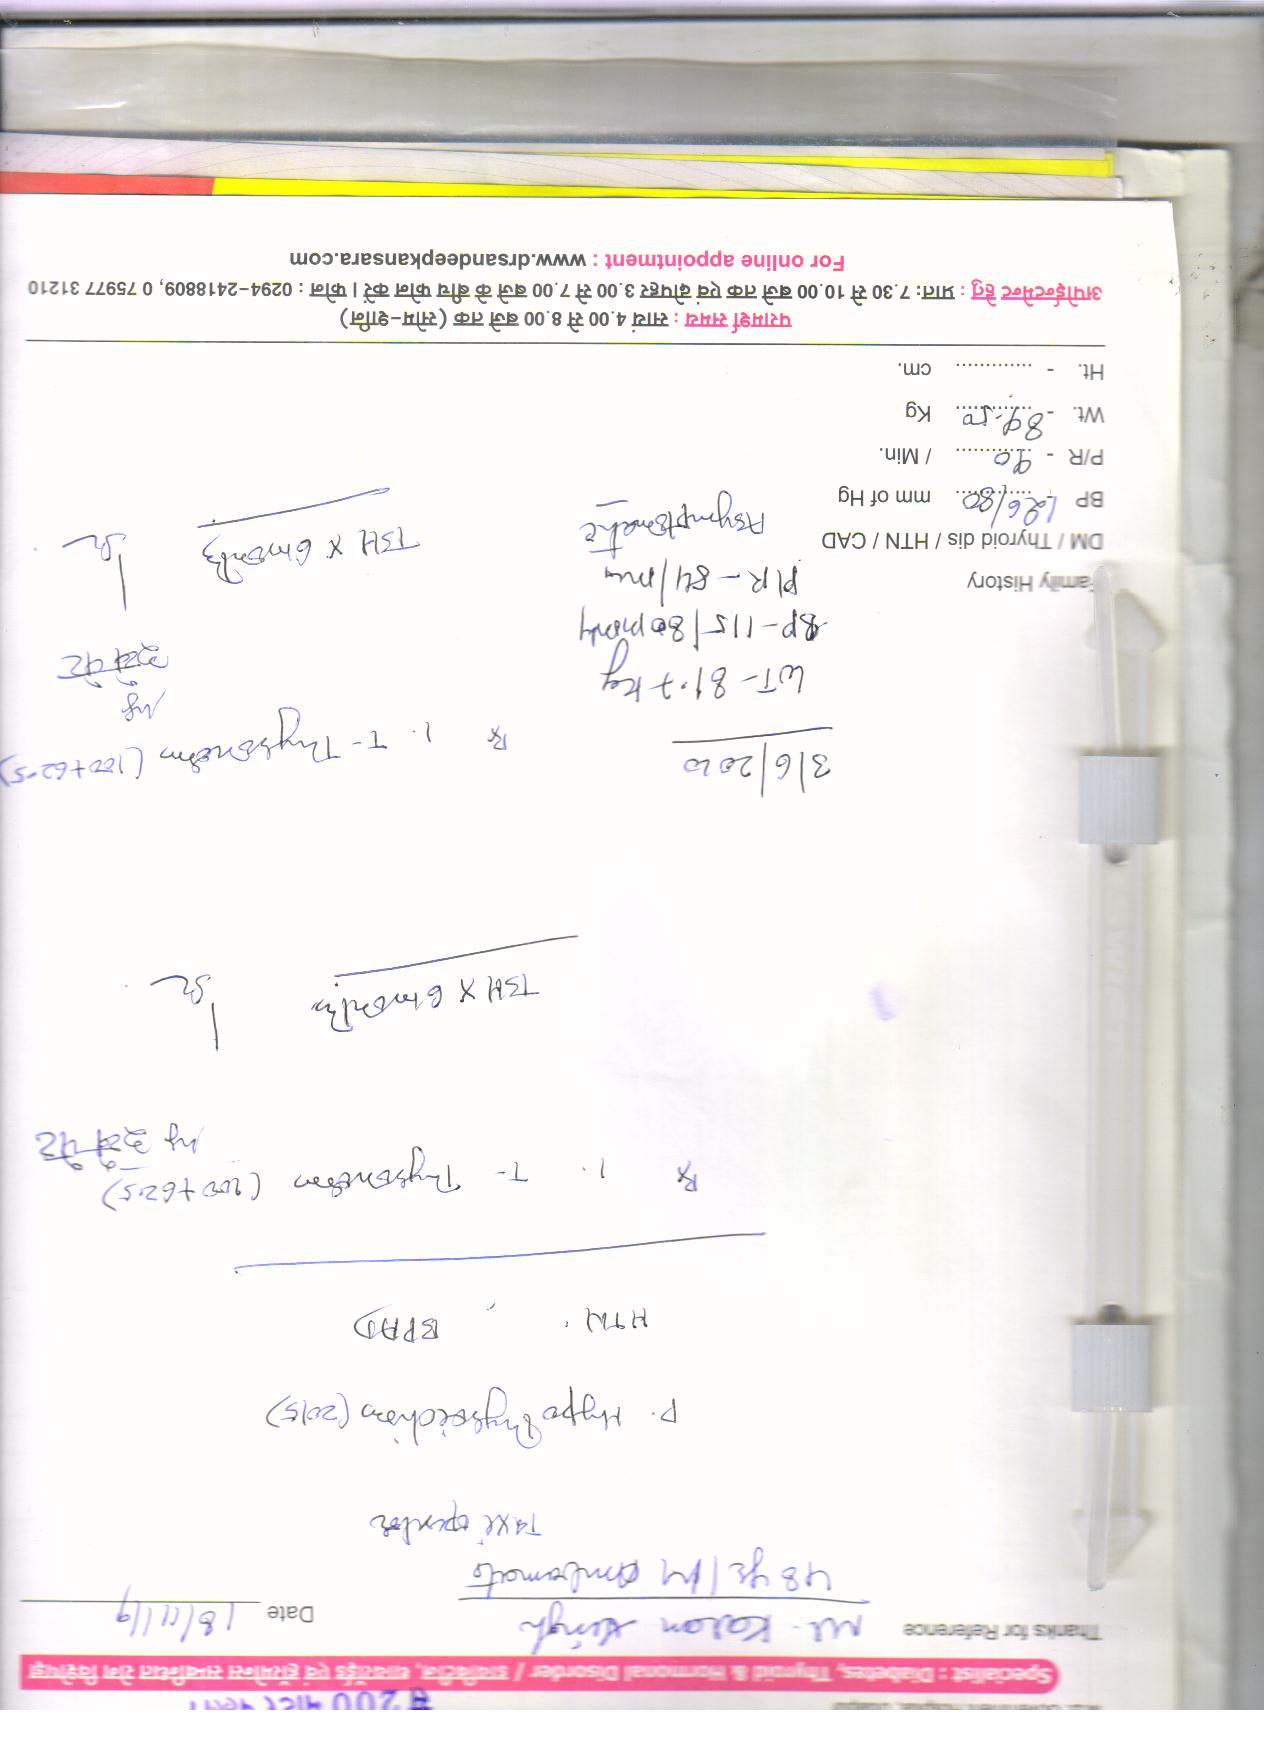 से 200 मीटर पहले।
Specialist : Diabetes, Thyroid & Hormonal Disorder / डायबिटीज, थायरॉईड एवं हॉरमोन्स सम्बन्धित रोग विशेषज्ञ
Thanks for Reference Mr. Karan Singh Date 18/11/19
48 yr/M
Taxi operator
P. Hypothyroidism (2015)
HTN, BPAD
Rx 1. T- Thyronorm (100+62.5)
TSH X 6 months
3/6/2020
Rx 1. T- Thyronorm (100+62.5)
WT- 81.7 kg
BP-115/80 mmHg
Family History P/R - 84/min
DM / Thyroid dis / HTN / CAD Asymptomatic TSH X 6 months
BP - 126/80 mm of Hg
P/R - 90 / Min.
Wt. - 89.50 Kg
Ht. - ............. cm.
परामर्श समय : सायं 4.00 से 8.00 बजे तक (सोम-शनि)
अपॉईन्टमेन्ट हेतु : प्रातः 7.30 से 10.00 बजे तक एवं दोपहर 3.00 से 7.00 बजे के बीच फोन करें। फोन : 0294-2418809, 0 75977 31210
For online appointment : www.drsandeepkansara.com